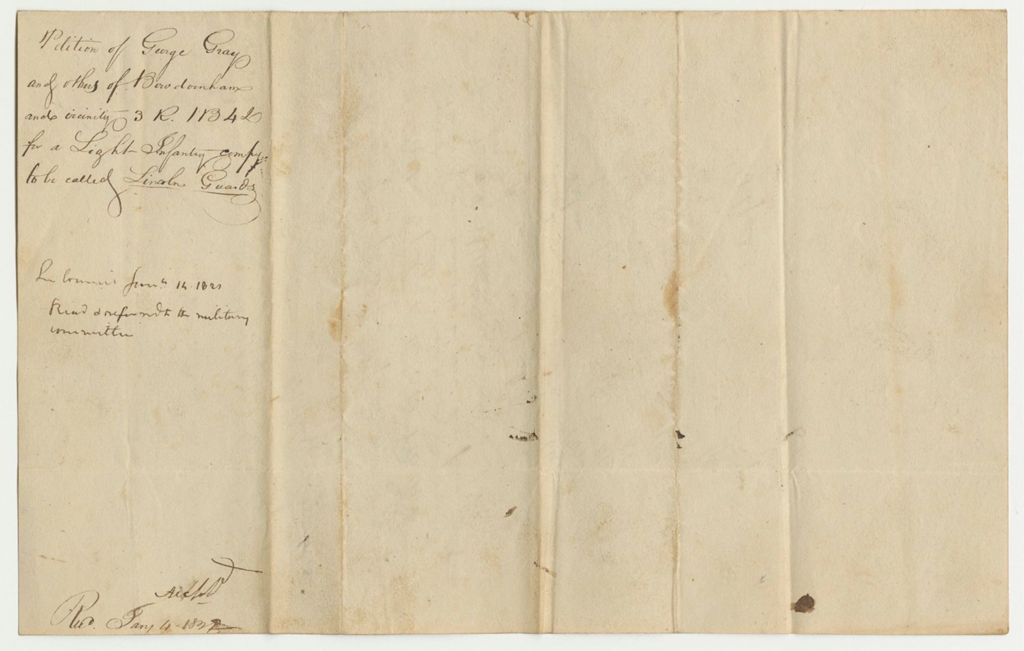 Petition of George Gray
and others of Bowdoinham
and vicinity 3 R. 1 B 4 D
for a Light Infantry compy
to be called Lincoln Guards
In Council Jany 14 1822
Read & referred to the military
committee
Recd. Jany 4 1822